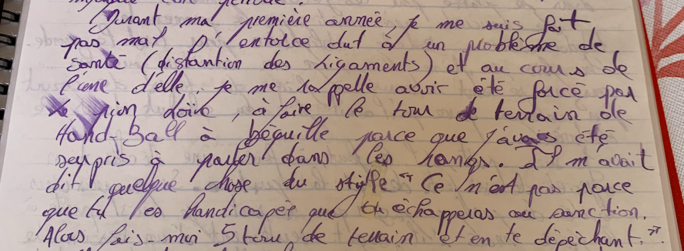 Durant ma première année, je me suis fait
pas mal d'entorce dut à un problème de
santé (distantion des ligaments) et au cours de
l'une d'elle, je me rappelle avoir été forcé par
mon à faire le tour de terrain de
Hand-Ball à béquille parce que j'avais été
surpris à parler dans les rangs. Il m'avait
dit quelque chose du style "Ce n'est pas parce
que tu es handicapée que tu échapperas au sanction.
Alors fais-moi 5 tour de terrain et en te dépêchant."